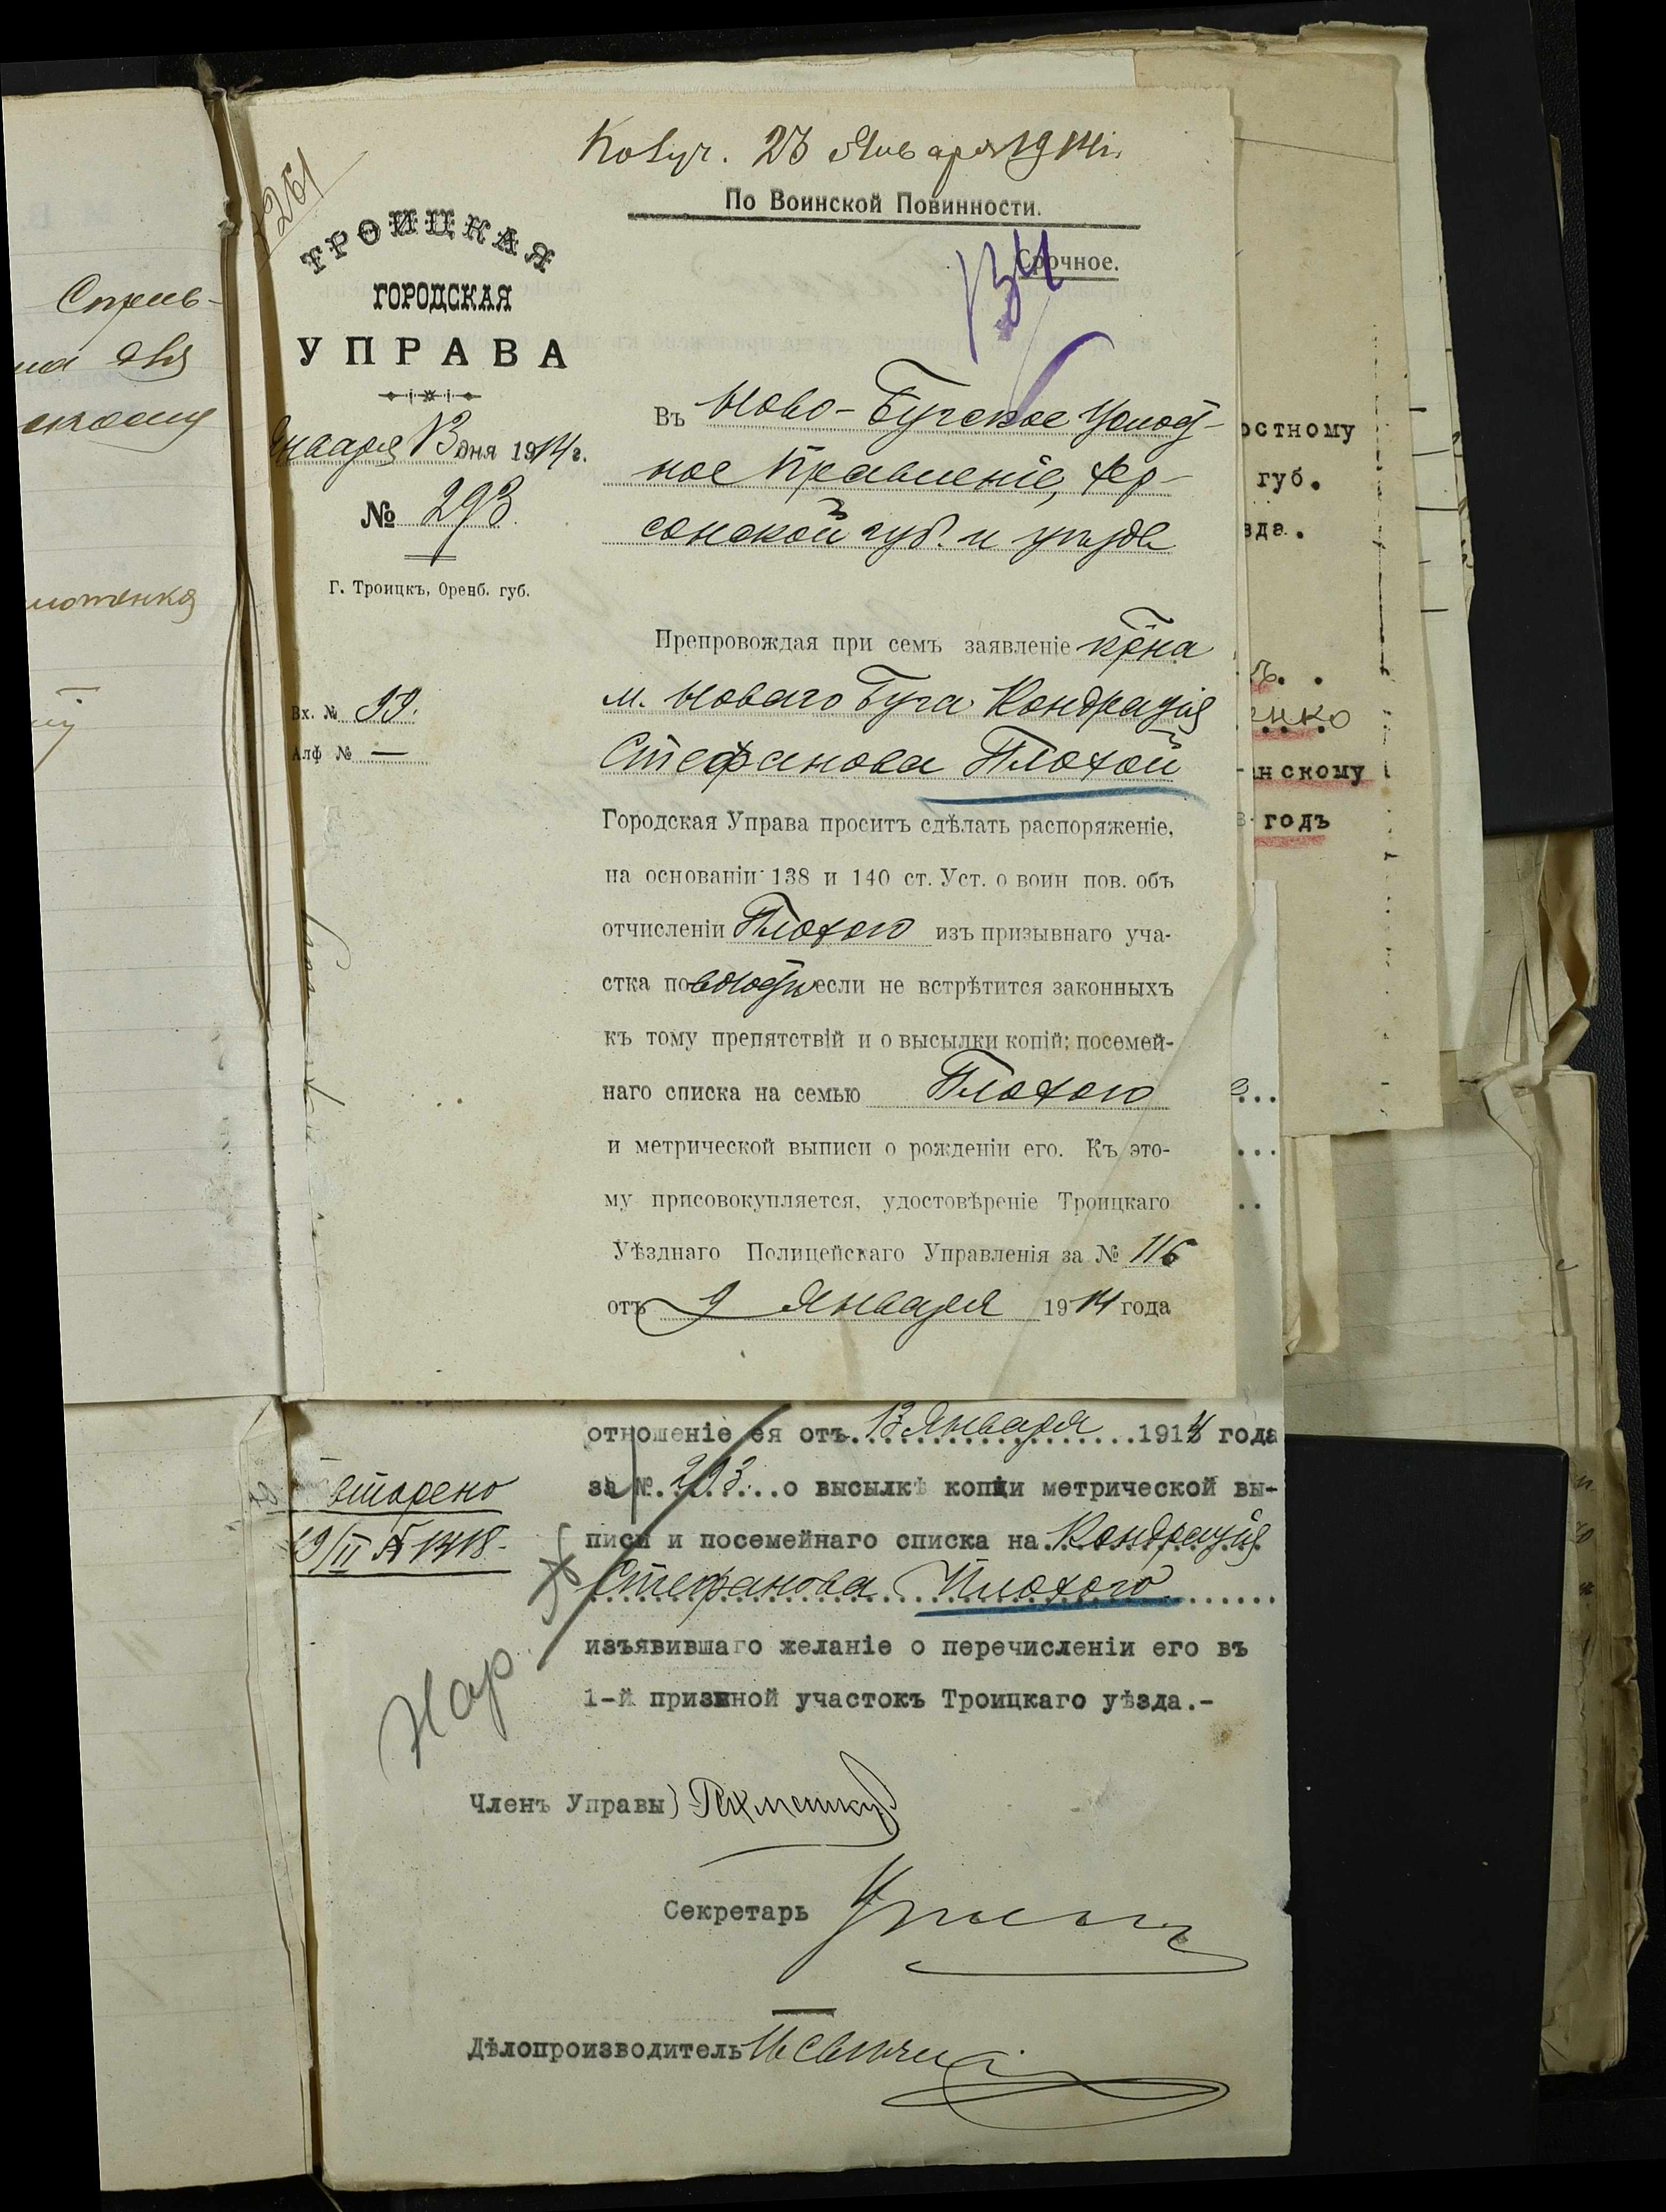 Получ. 23 Января 1914 г.
По Воинской Повинности.
Срочное.
134
1261
ТРОИЦКАЯ
ГОРОДСКАЯ
УПРАВА
Января 13 дня 1914 г.
№ 293
Г. Троицкъ, Оренб. губ.
Вх. № 99.
Алф № —
Въ Ново-Бугское Волост-
ное Правленіе, Хер-
сонской губ. и уѣзда
Препровождая при семъ заявленіе кр-на
м. Новаго Буга Кондратія
Стефанова Плохой
Городская Управа проситъ сдѣлать распоряженіе,
на основаніи 138 и 140 ст. Уст. о воин пов. объ
отчисленіи Плохого изъ призывнаго уча-
стка по волости если не встрѣтится законныхъ
къ тому препятствій и о высылки копій: посемей-
наго списка на семью Плохого
и метрической выписи о рожденіи его. Къ это-
му присовокупляется, удостовѣреніе Троицкаго
Уѣзднаго Полицейскаго Управленія за № 116
отъ 9 Января 1914 года
отношеніе ея отъ 13 Января 1914 года
за № 293 о высылкѣ копіи метрической вы-
писи и посемейнаго списка на Кондратія
Стефанова Плохого
изъявившаго желаніе о перечисленіи его въ
1-й призывной участокъ Троицкаго уѣзда.-
19/II № 1418-
Нар.
Членъ Управы
Секретарь
Дѣлопроизводитель
остному
губ.
зда.
енко
анскому
годъ